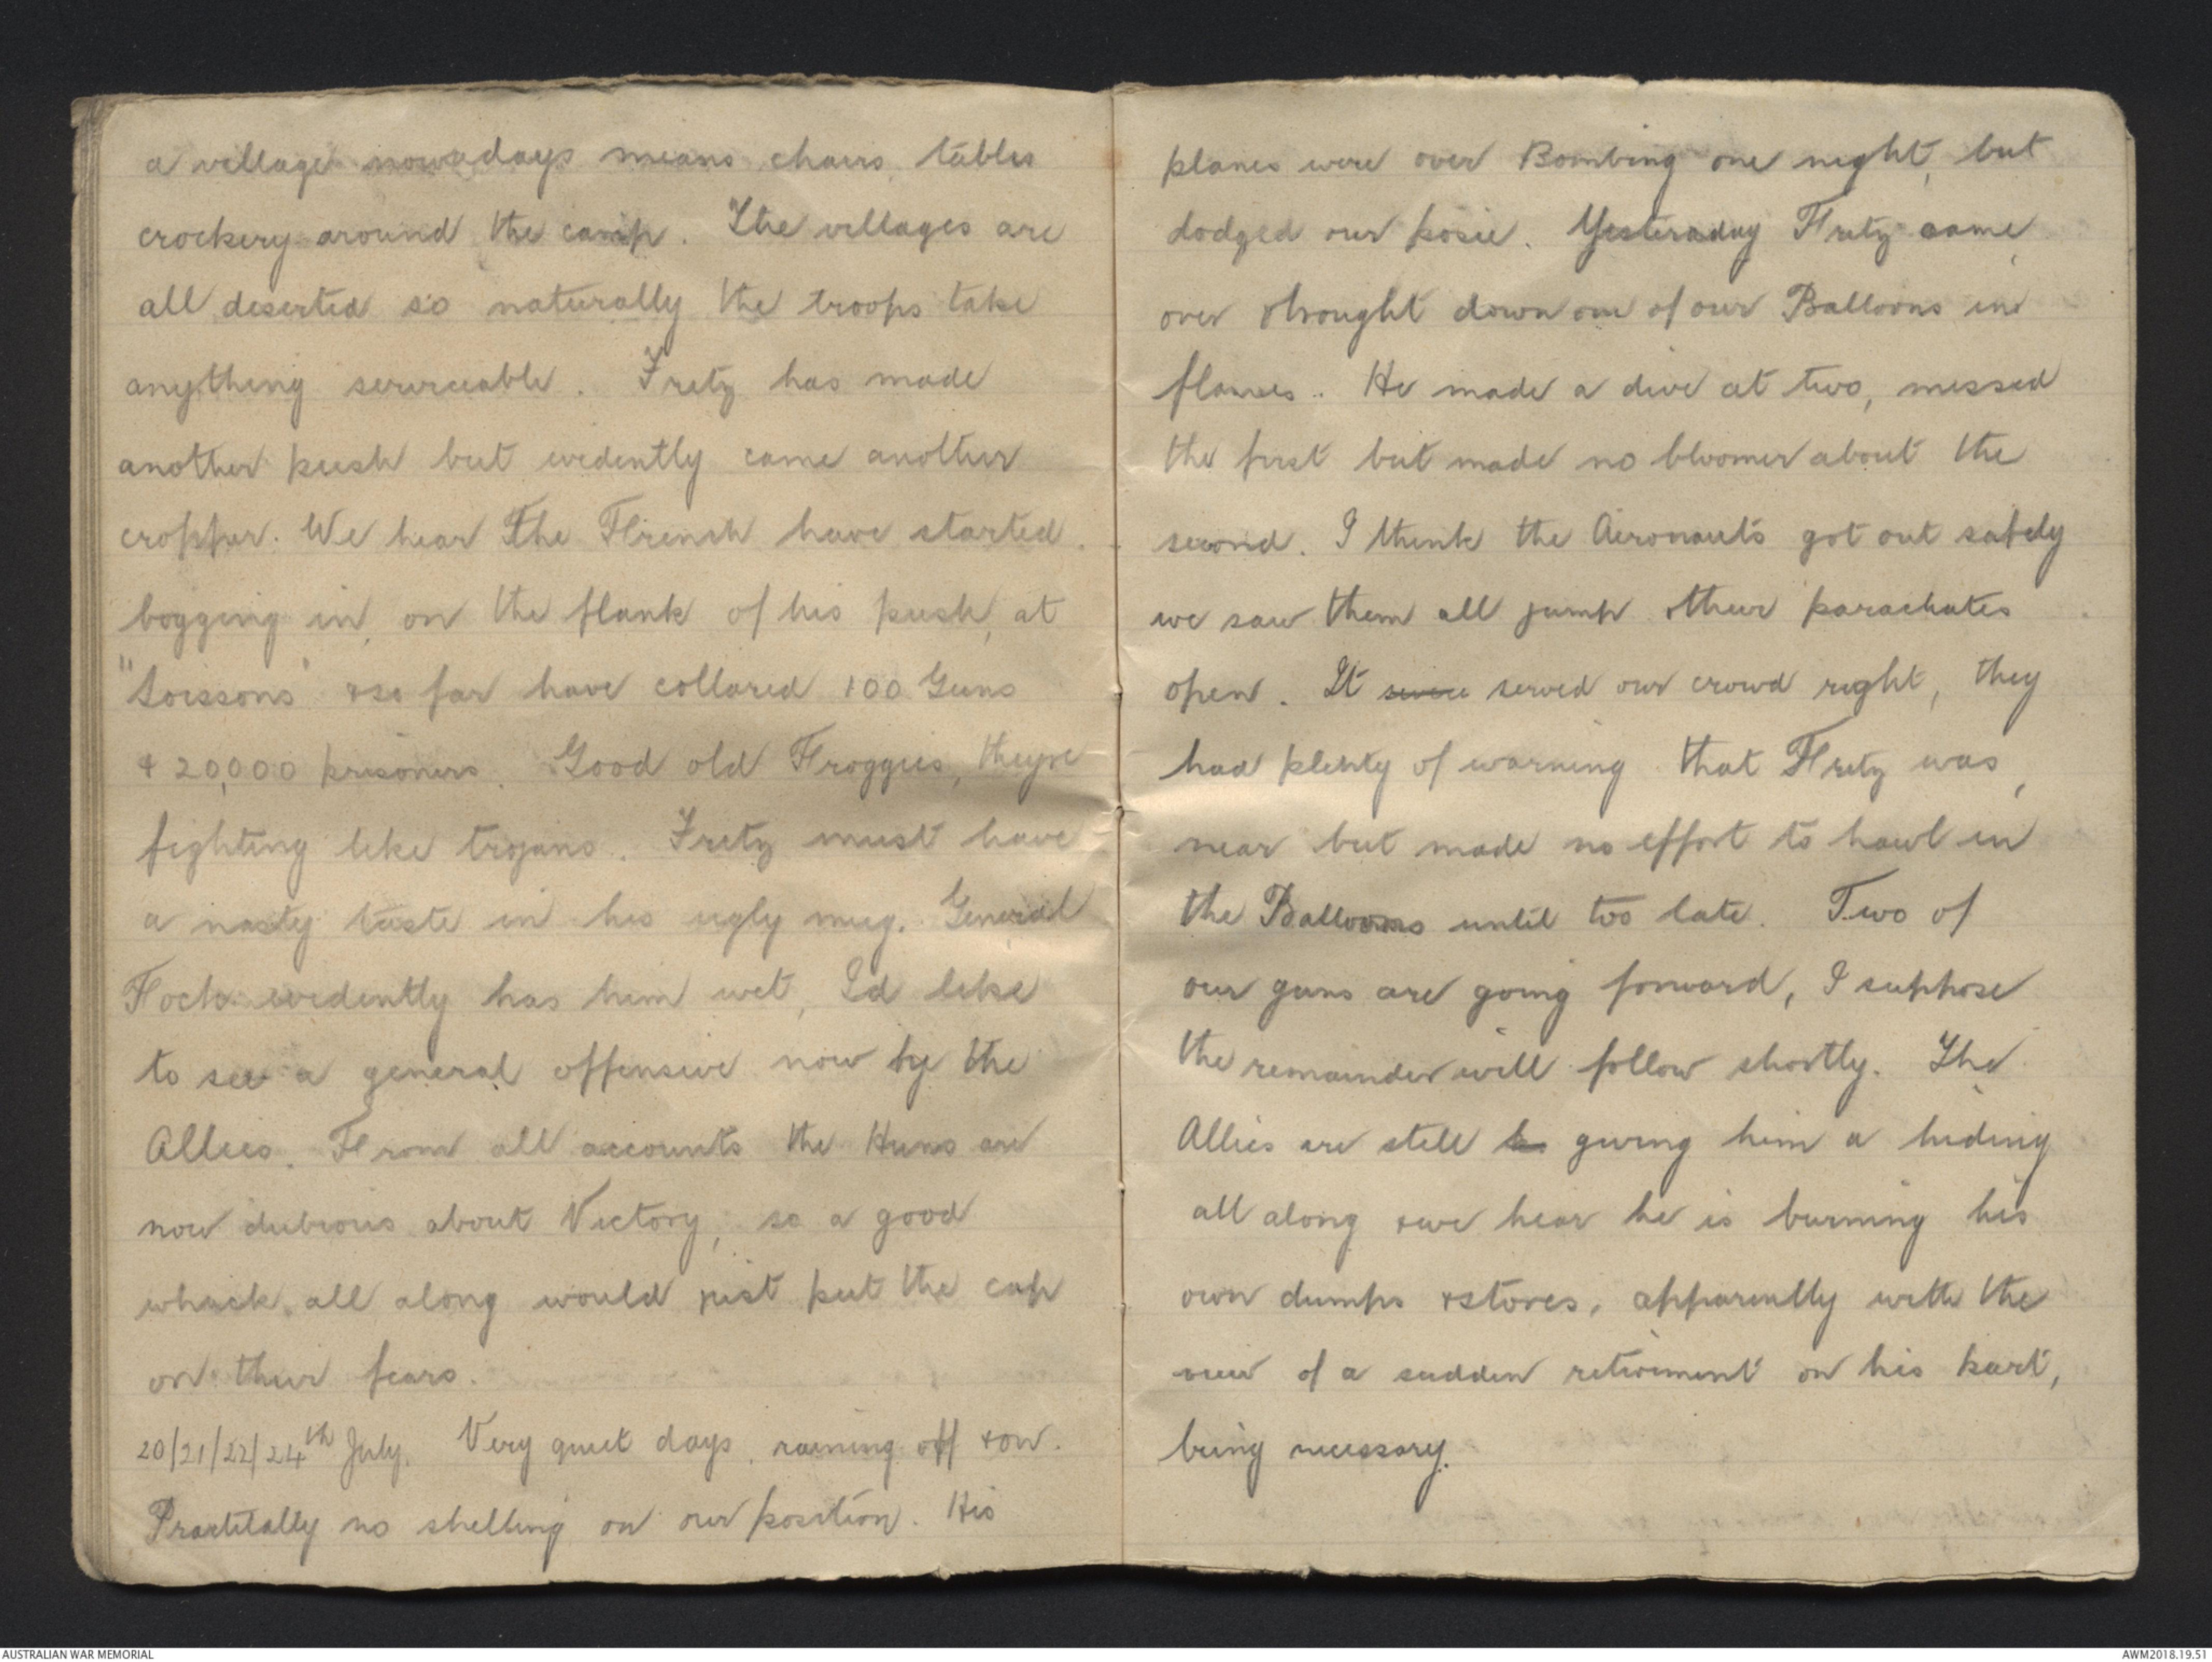 a village nowadays means chairs, tables
crockery around the camp. The villages are
all deserted so naturally the troops take
anything serviceable. Fritz has made
another push but evidently came another
cropper. We hear The French have started
bogging in, on the flank of his push, at
"Soissons" & so far have collared 100 Guns
& 20,000 prisoners. Good old Froggies, they're
fighting like trojans. Fritz must have
a nasty taste in his ugly mug. General
Foch evidently has him wet, I'd like
to see a general offensive now by the
Allies. From all accounts the Huns are
now dubious about Victory, so a good
whack all along would just put the cap
on their fears.
20/21/22/24th July. Very quiet days, raining off & on.
Practitally no shelling on our position. His
planes were over Bombing one night, but
dodged our posie. Yesteraday Fritz came
over & brought down one of our Balloons in
flames. He made a dive at two, missed
the first but made no bloomer about the
second. I think the Aeronauts got out safely
we saw them all jump & their parachutes
open. It served our crowd right, they
had plenty of warning that Fritz was,
near but made no effort to hawl in
the Balloons until too late. Two of
our guns are going forward, I suppose
the remainder will follow shortly. The
Allies are still giving him a hiding
all along & we hear he is burning his
own dumps & stores, apparently with the
view of a sudden retirement on his part,
being necessary.
AUSTRALIAN WAR MEMORIAL
AWM2018.19.51